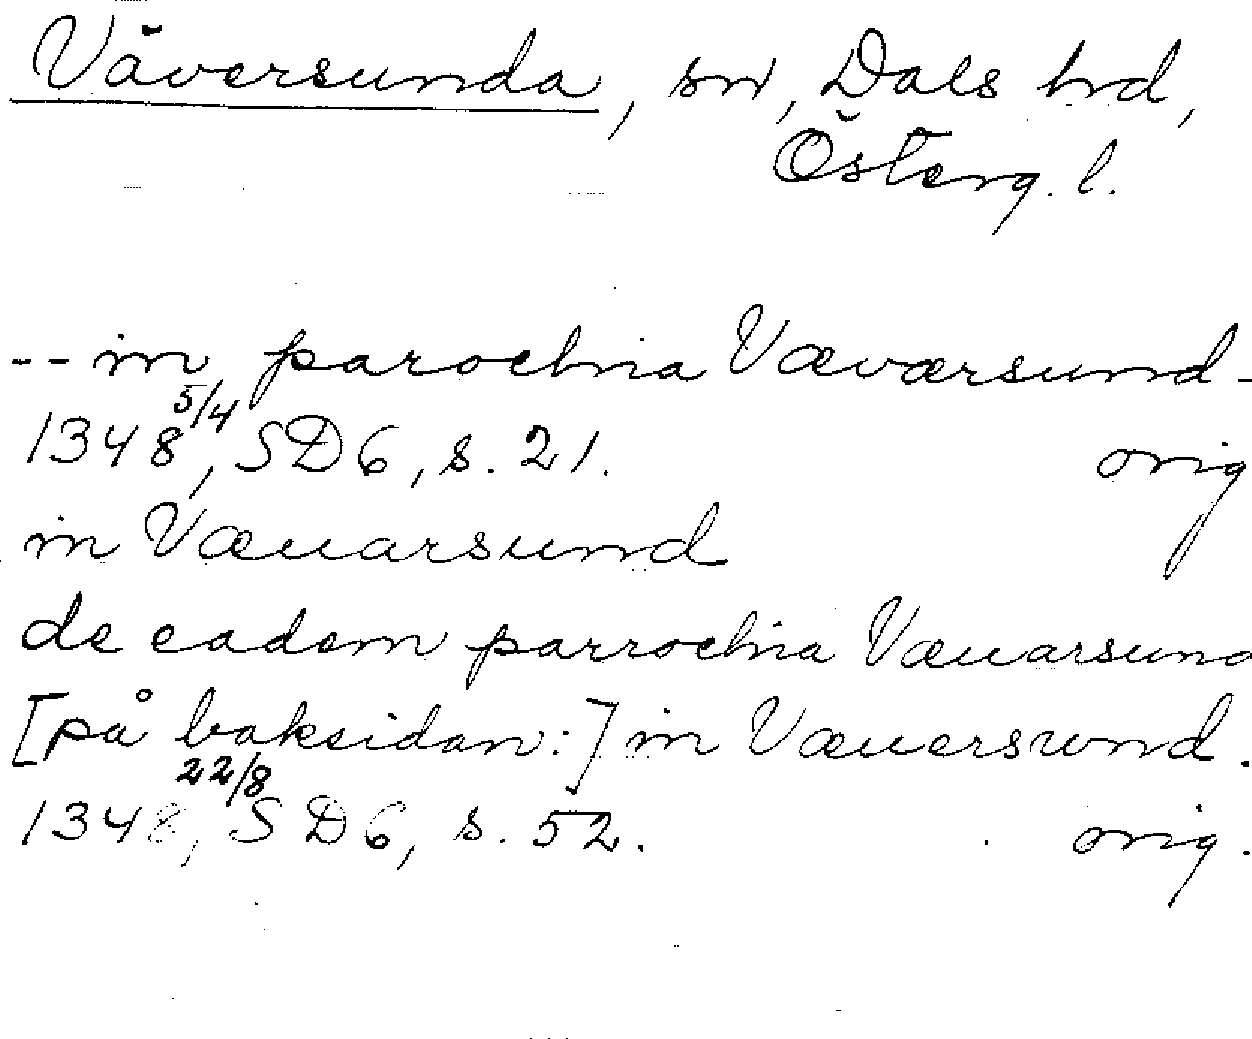 Väversunda, sn, Dals hd,
Österg. l.
-- in parochia Væværsund -
1348 5/4, SD 6, s. 21. orig
in Væuarsund
de eadem parrochia Væuarsund
[på baksidan:] in Væuersund.
1348 22/8, SD 6, s. 52. orig.